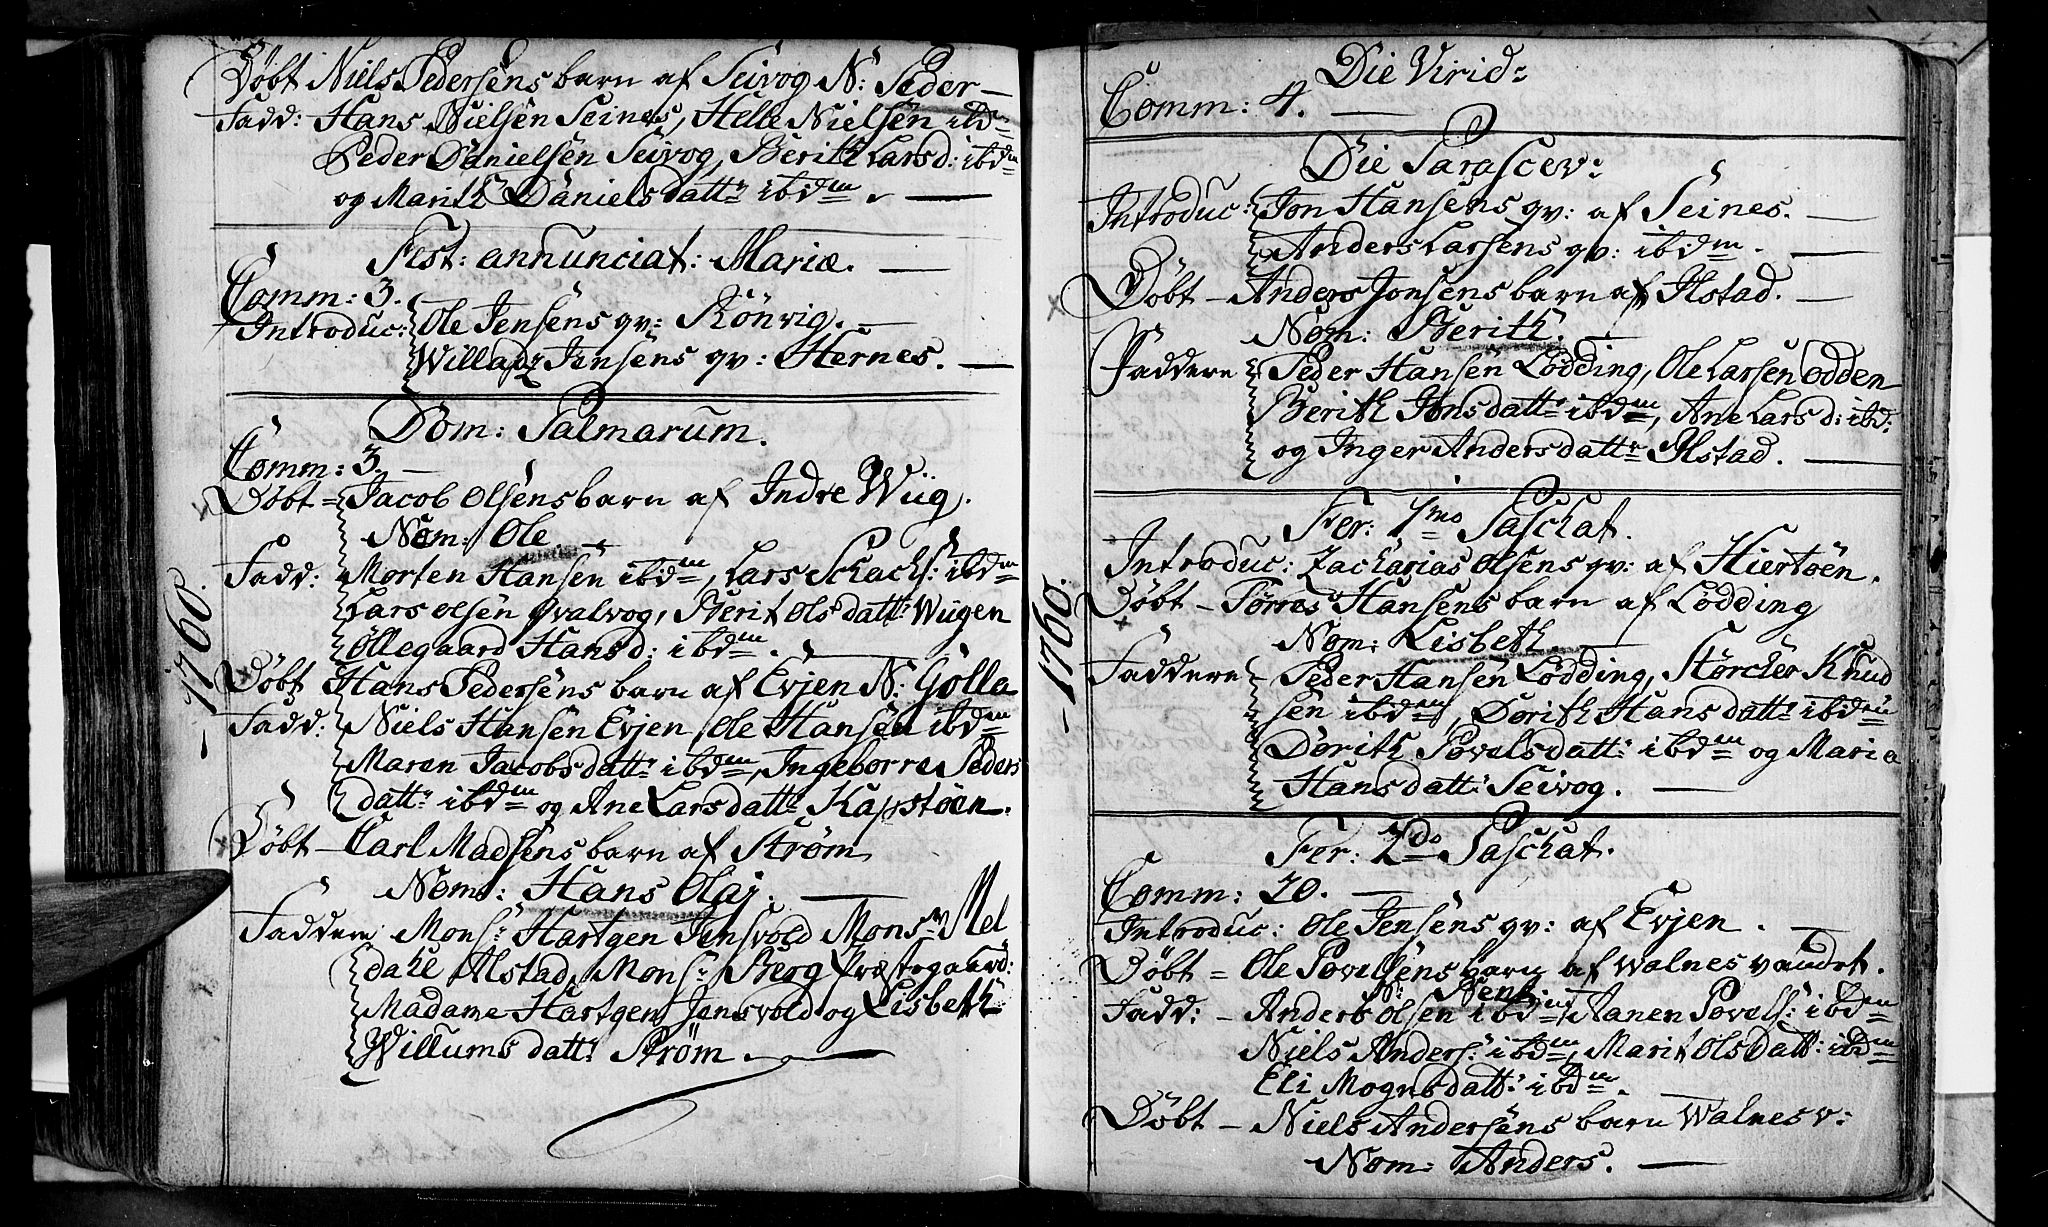 Döbt Niels Pedersens barn af Seivog N: Peder —
Fadd: Hans Nielsen Seines, Helle Nielsen ibdm
Peder Danielsen Seivog, Berith Larsd: ibdm
og Marith Daniels dattr ibdm. —
Fest: annunciat: Mariæ. —
Comm: 3.
Introduc: Ole Jensens qv: Rönvig. —
Willads Jensens qv: Hernes. —
Dom: Palmarum.
Comm: 3. —
Döbt = Jacob Olsens barn af Indre Wüg.
Nom: Ole —
Fadd: Morten Hansen ibdm, Lars Schachs: ibdm
Lars Olsen Qvalvog, Berit Ols dattr Wügen
Ollegaard Hansd: ibdm. —
-1760.
Döbt Hans Pedersens barn af Evjen N: Golla
Fadd: Niels Hansen Evjen, Ole Hansen ibdm
Maren Jacobs dattr ibdm, Ingeborre Peders
dattr ibdm og Ane Lars dattr Kapstöen.
Döbt — Carl Madsens barn af Ström
Nom: Hans Olaj. —
Faddere Monsr Hartgen Jensvold Monsr Mel
dahl Alstad, Monsr Berg Præstegaard:
Madame Hartgen Jensvold og Lisbeth
Willums dattr Ström. —
Die Virid:
Comm: 4. —
Die Parascev:
Introduc: Jon Hansens qv: af Seines. —
Anders Larsens qv: ibdm. —
Döbt — Anders Jonsens barn af Ilstad. —
Nom: Berith —
Faddere Peder Hansen Lödding, Ole Larsen Odden
Berith Jons dattr ibdm, Ane Lars d: ibd:
og Inger Anders dattr Ilstad. —
Fer: 1mo Paschat.
Introduc: Zacharias Olsens qv: af Hiertöen.
Döbt — Törres Hansens barn af Lödding
Nom: Lisbeth —
-1760.
Faddere — Peder Hansen Lödding, Störcher Knud
sen ibdm, Dorith Hans dattr ibdm
Dorith Povels datt: ibdm og Maria
Hans datt: Seivog. —
Fer: 2do Paschat.
Comm: 20. —
Introduc: Ole Jensens qv: af Evjen. —
Döbt = Ole Povelsens barn af Walnesvandet.
N:
Fadd: — Anders Olsen ibdm, Aanen Povels: ibdm
Niels Anders: ibdm, Marit Ols datt: ibdm
Eli Mogns datt: ibdm.
Döbt — Niels Andersens barn Walnesv:
Nom: Anders. —